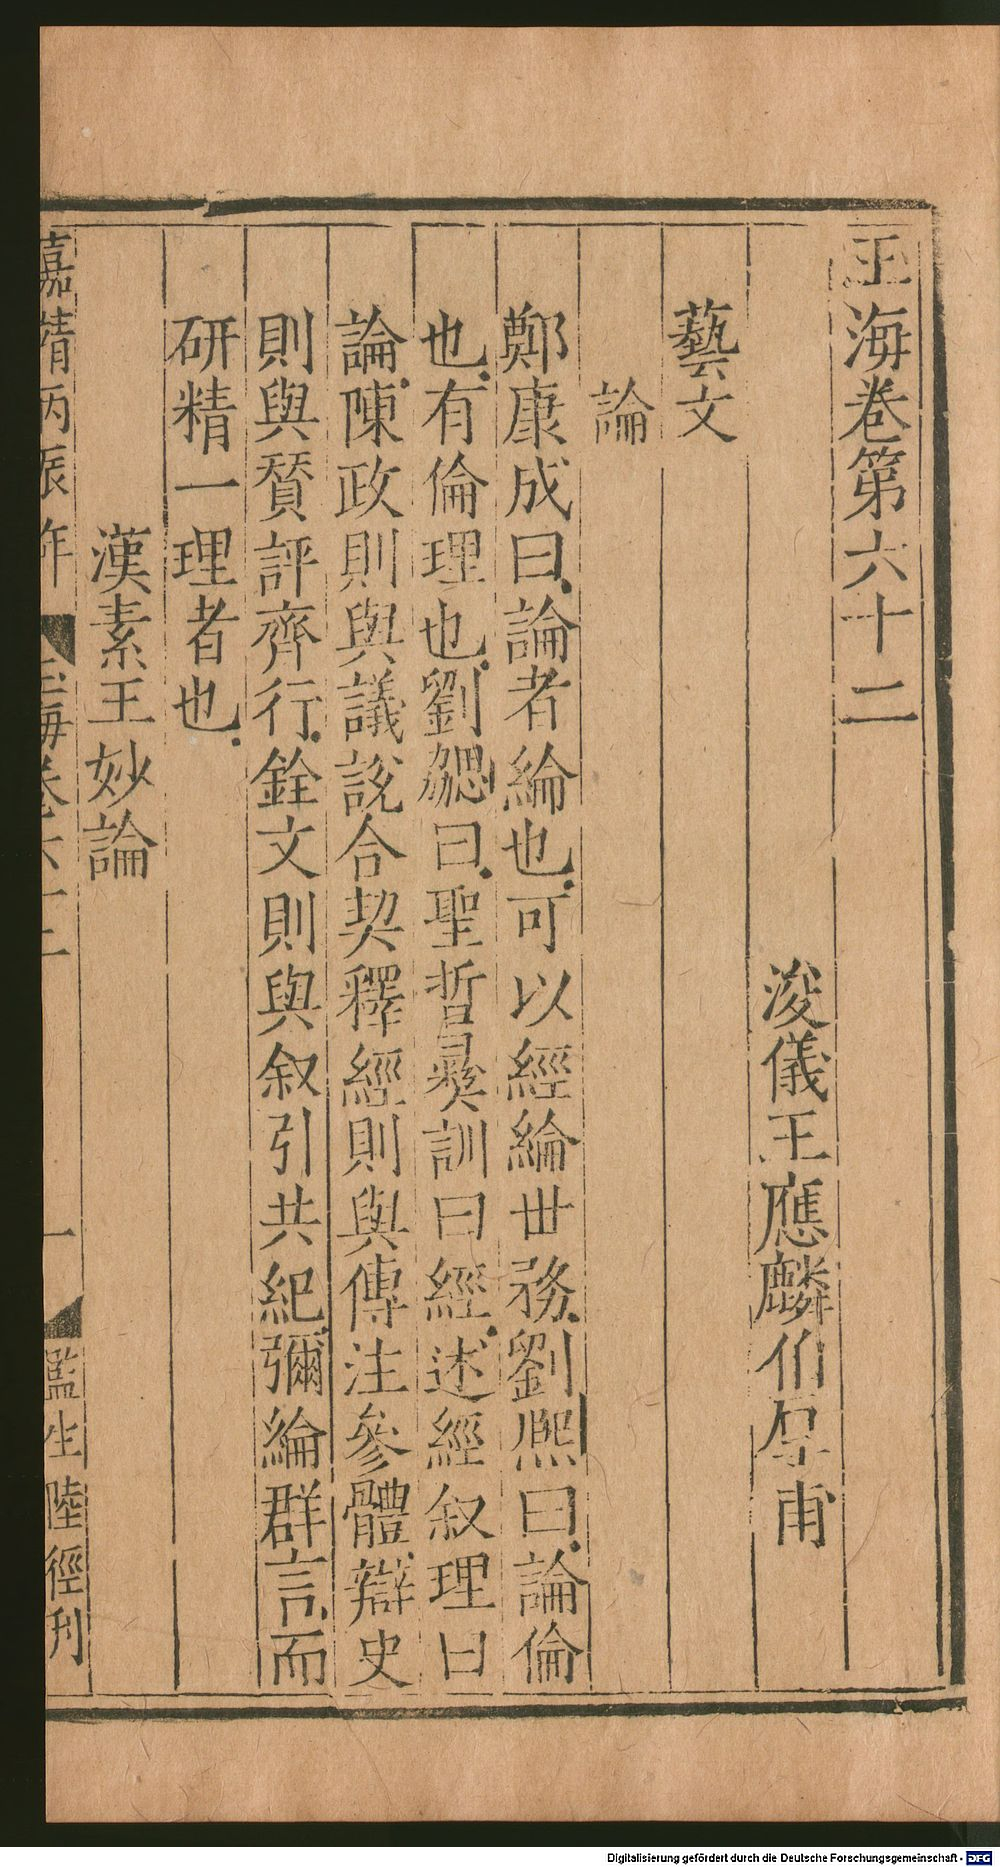 玉海卷第六十二
浚儀王應麟伯厚甫
藝文
論
鄭康成曰論者綸也可以經綸世務劉熙曰論倫
也有倫理也劉勰曰聖哲彝訓曰經述經叙理曰
論陳政則與議說合契釋經則與傳注參體辯史
則與贊評齊行銓文則與叙引共紀彌綸群言而
研精一理者也
漢素王妙論
嘉靖丙辰年 玉海卷六十二 一 監生陸徑刋
Digitalisierung gefördert durch die Deutsche Forschungsgemeinschaft - DFG